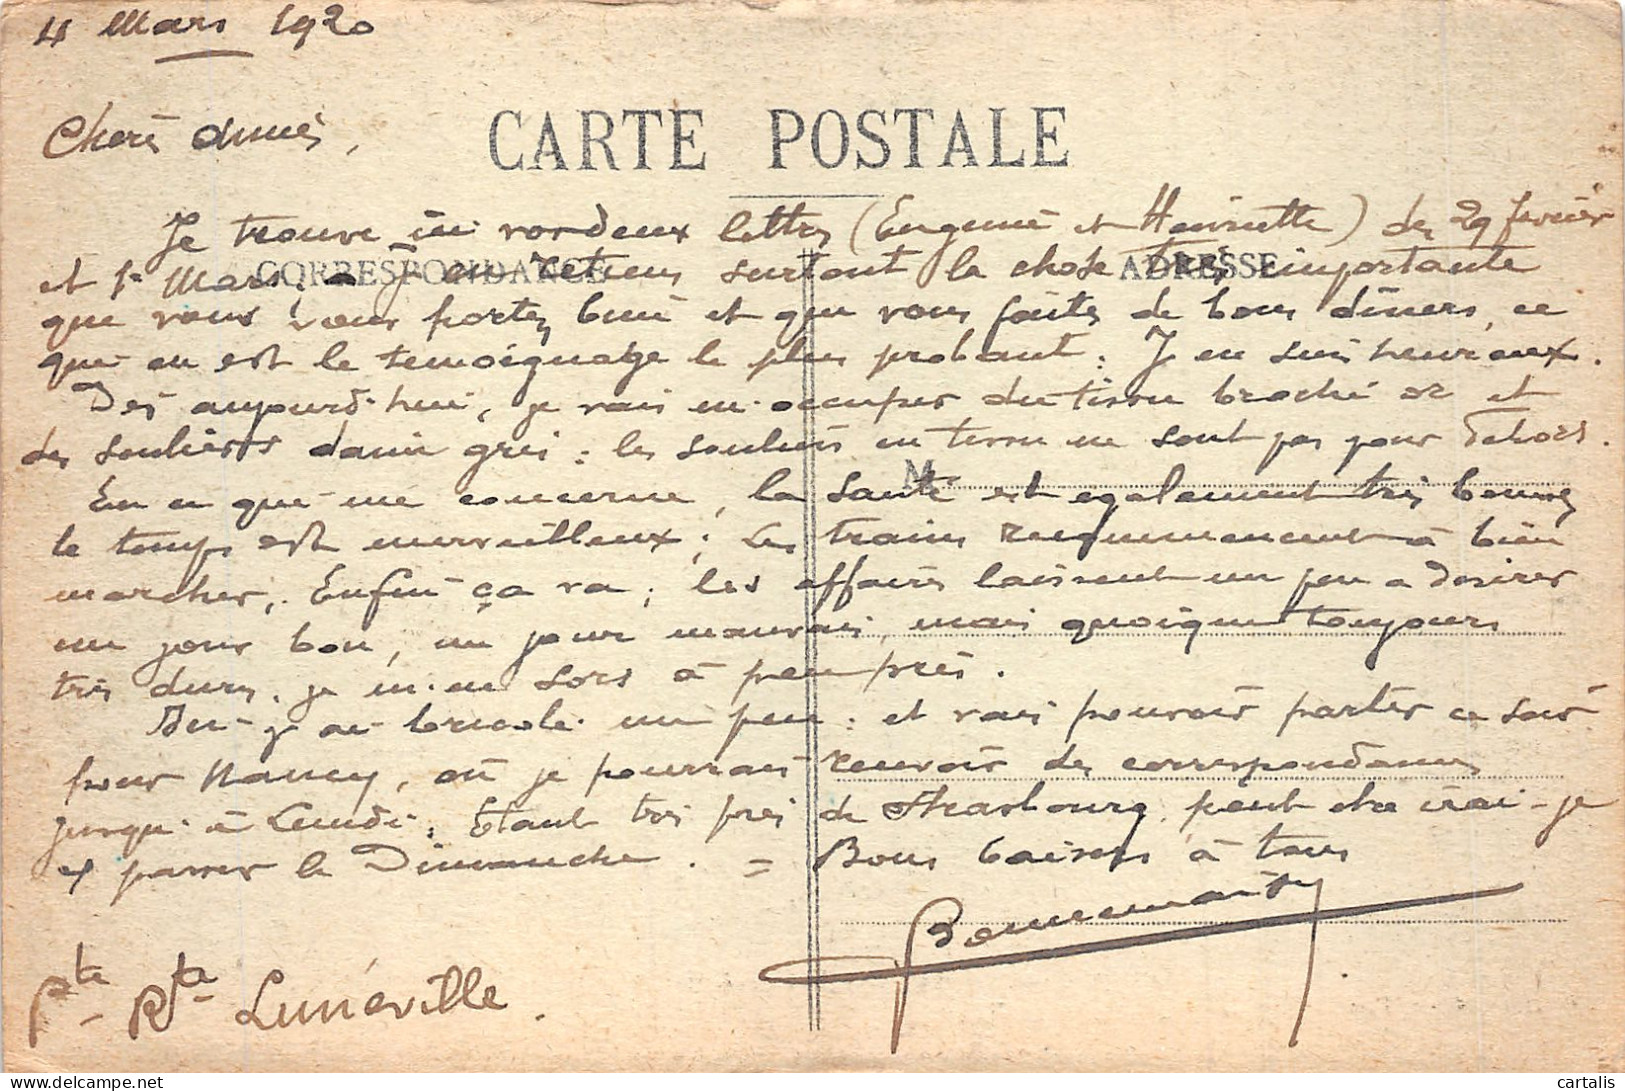 4 Mars 1920
CARTE POSTALE
Chers Amis,
Je trouve ici vos deux lettres (Eugenie et Henriette) des 29 fevrier
CORRESPONDANCE
ADRESSE
et 1er Mars; J'en retiens surtout la chose très importante
que vous vous portez bien et que vous faites de bons diners, ce
qui en est le temoignage le plus probant. J'en suis heureux.
Des aujourd'hui, je vais m'occuper du tissu broché or et
des souliers daim gris : les souliers en tissu ne sont pas pour dehors.
En ce qui me concerne, la santé est egalement très bonne,
M
le temps est merveilleux; Les trains recommencent à bien
marcher, Enfin ça va; les affaires laissent un peu a desirer
un jour bon, un jour mauvais, mais quoique toujours
très dures, je m'en sors à peu près.
Ici j'ai bricolé un peu : et vais pouvoir partir ce soir
pour Nancy, où je pourrais recevoir des correspondances
jusqu'à Lundi. Etant très près de Strasbourg, peut etre irai-je
y passer le Dimanche. = Bons baisers à tous
Pte Rte Lunéville.